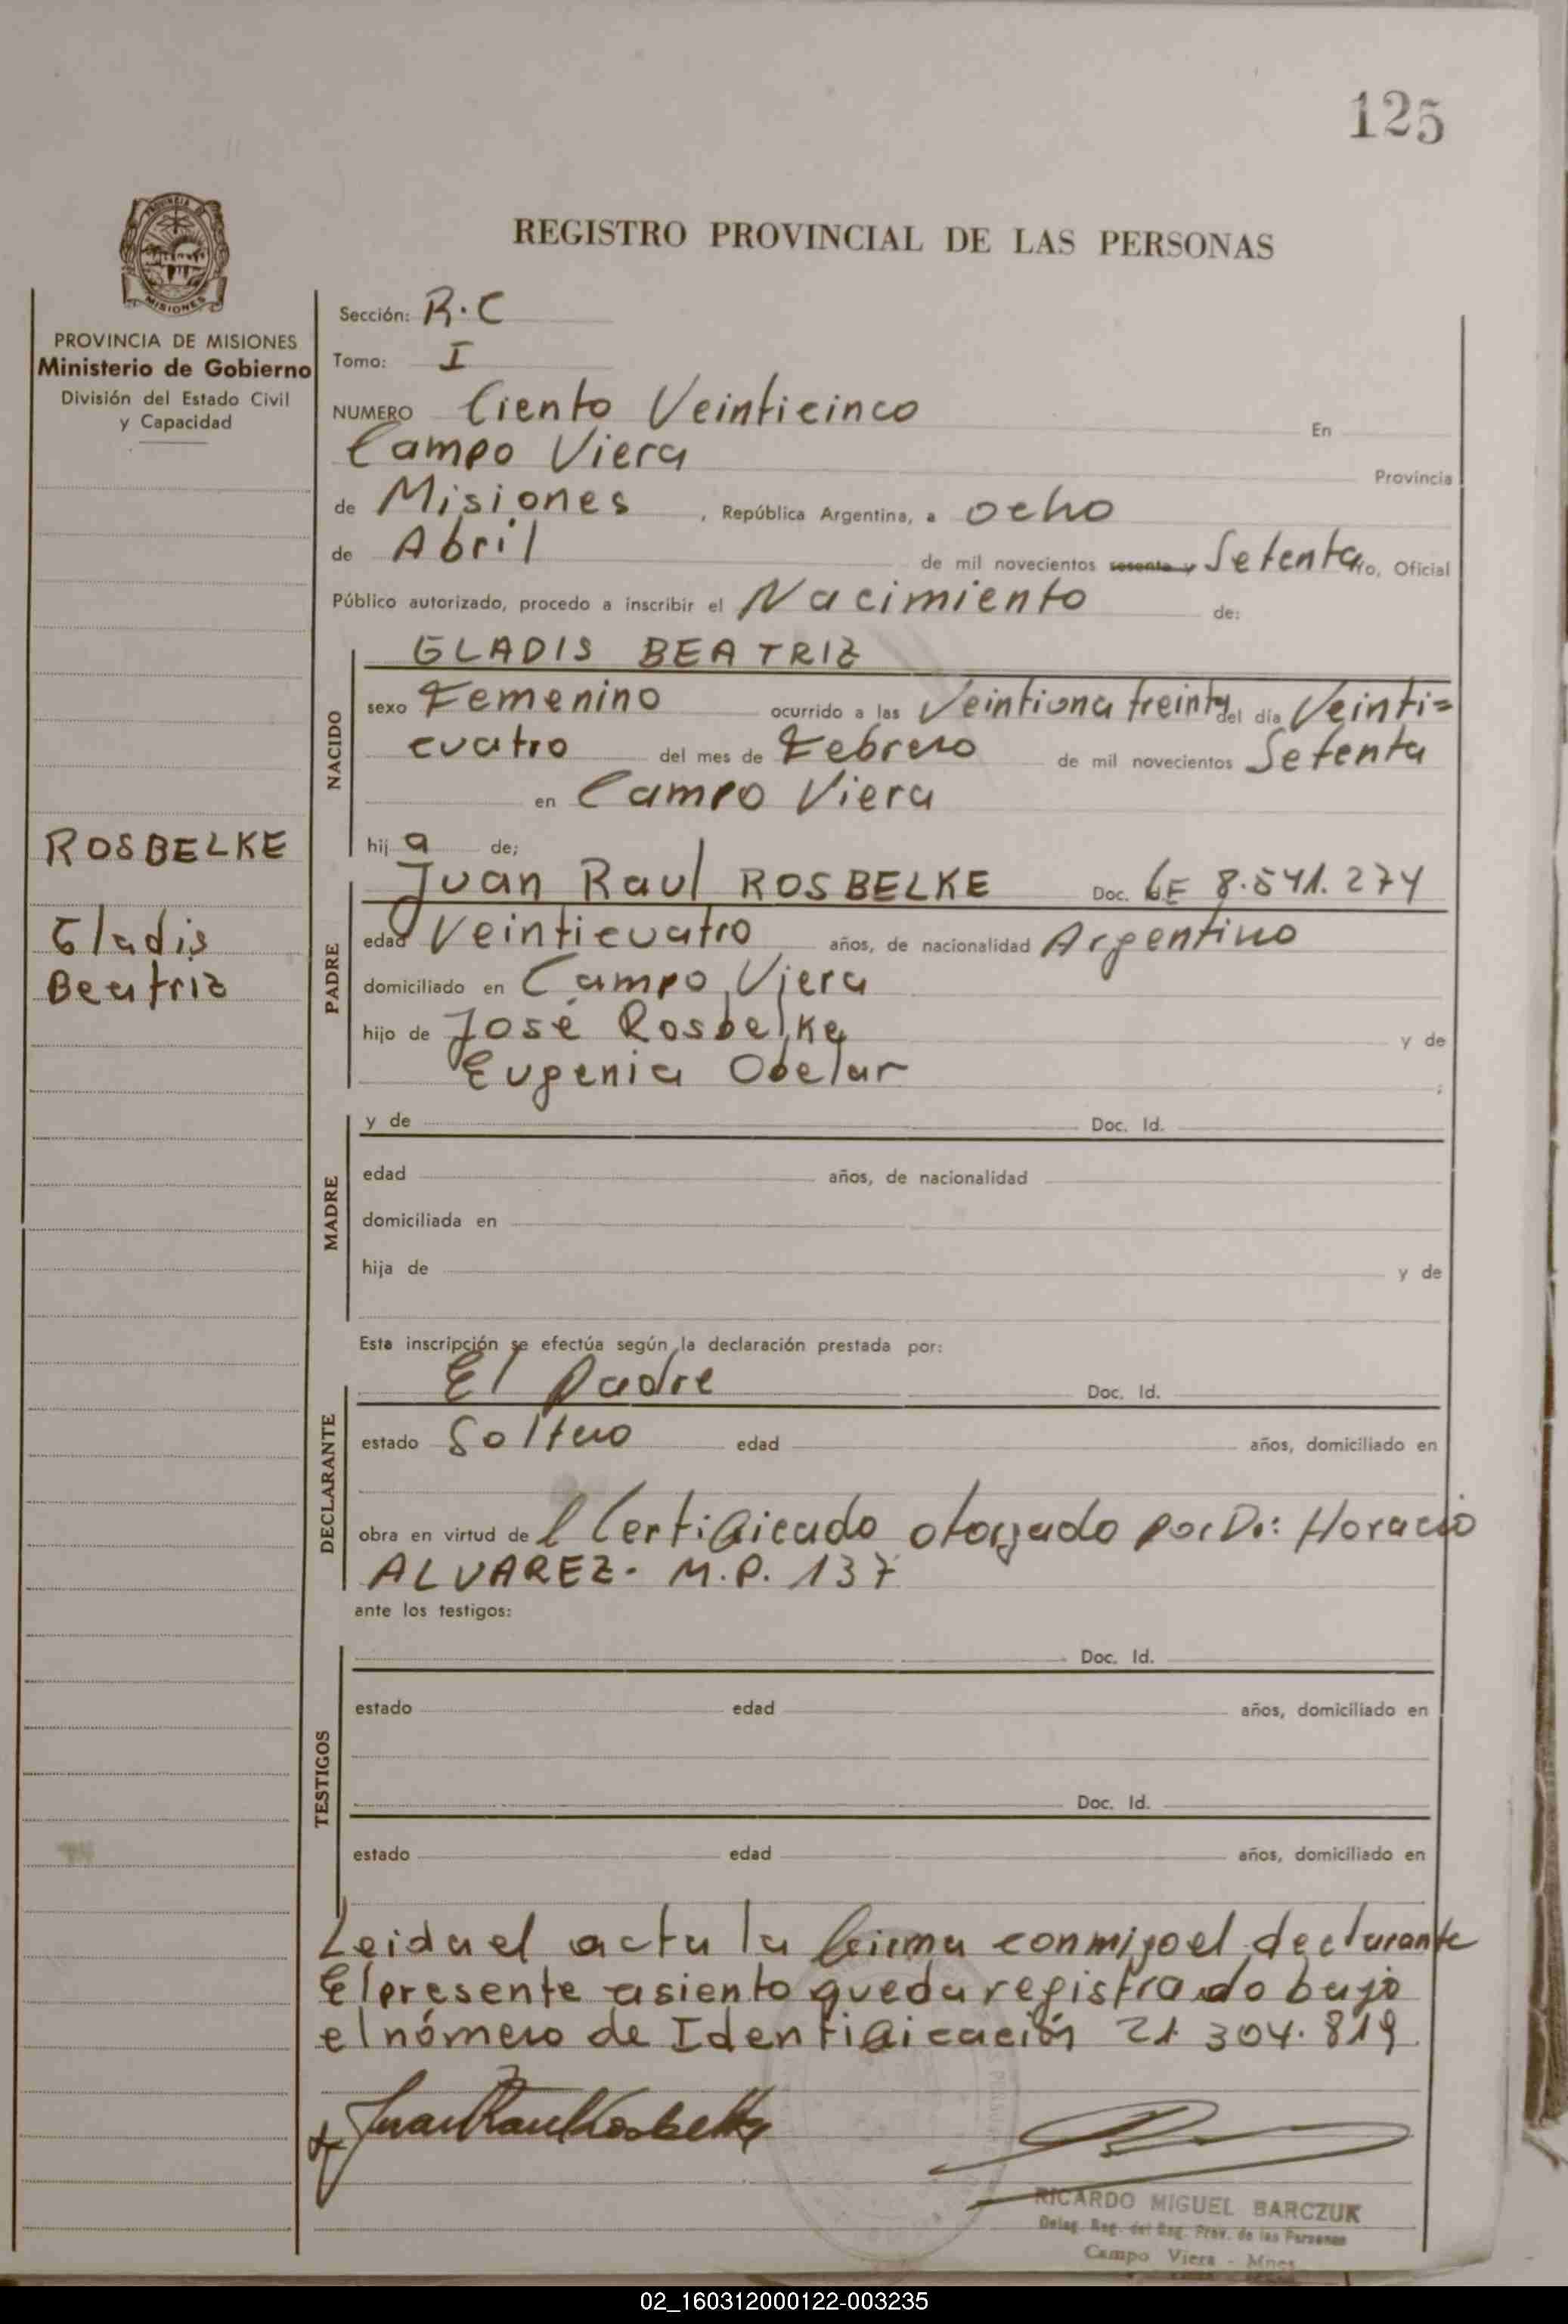 125
REGISTRO PROVINCIAL DE LAS PERSONAS
PROVINCIA DE MISIONES
Ministerio de Gobierno
División del Estado Civil
y Capacidad
ROSBELKE
Gladis
Beatriz
Sección: R.C
Tomo: I
NUMERO Ciento Veinticinco En
Campo Viera Provincia
de Misiones, República Argentina, a ocho
de Abril de mil novecientos sesenta y Setenta Yo, Oficial
Público autorizado, procedo a inscribir el Nacimiento de:
NACIDO
GLADIS BEATRIZ
sexo Femenino ocurrido a las Veintiuna treinta del día Veinti=
cuatro del mes de Febrero de mil novecientos Setenta
en Campo Viera
hija de;
PADRE
Juan Raul ROSBELKE Doc. LE 8.541.274
edad Veinticuatro años, de nacionalidad Argentino
domiciliado en Campo Viera
hijo de José Rosbelke y de
Eugenia Obelar ;
MADRE
y de Doc. Id.
edad años, de nacionalidad
domiciliada en
hija de y de
Esta inscripción se efectúa según la declaración prestada por:
DECLARANTE
El padre Doc. Id.
estado Soltero edad años, domiciliado en
obra en virtud de l Certificado otorgado por Dr: Horacio
ALVAREZ. M.P. 137
ante los testigos:
TESTIGOS
Doc. Id.
estado edad años, domiciliado en
Doc. Id.
estado edad años, domiciliado en
Leida el acta la firma conmigo el declarante
El presente asiento queda registrado bajo
el número de Identificación 21.304.819
Juan Raul Rosbelke
RICARDO MIGUEL BARCZUK
Deleg. Reg. del Reg. Prov. de las Personas
Campo Viera - Mnes
02_160312000122-003235